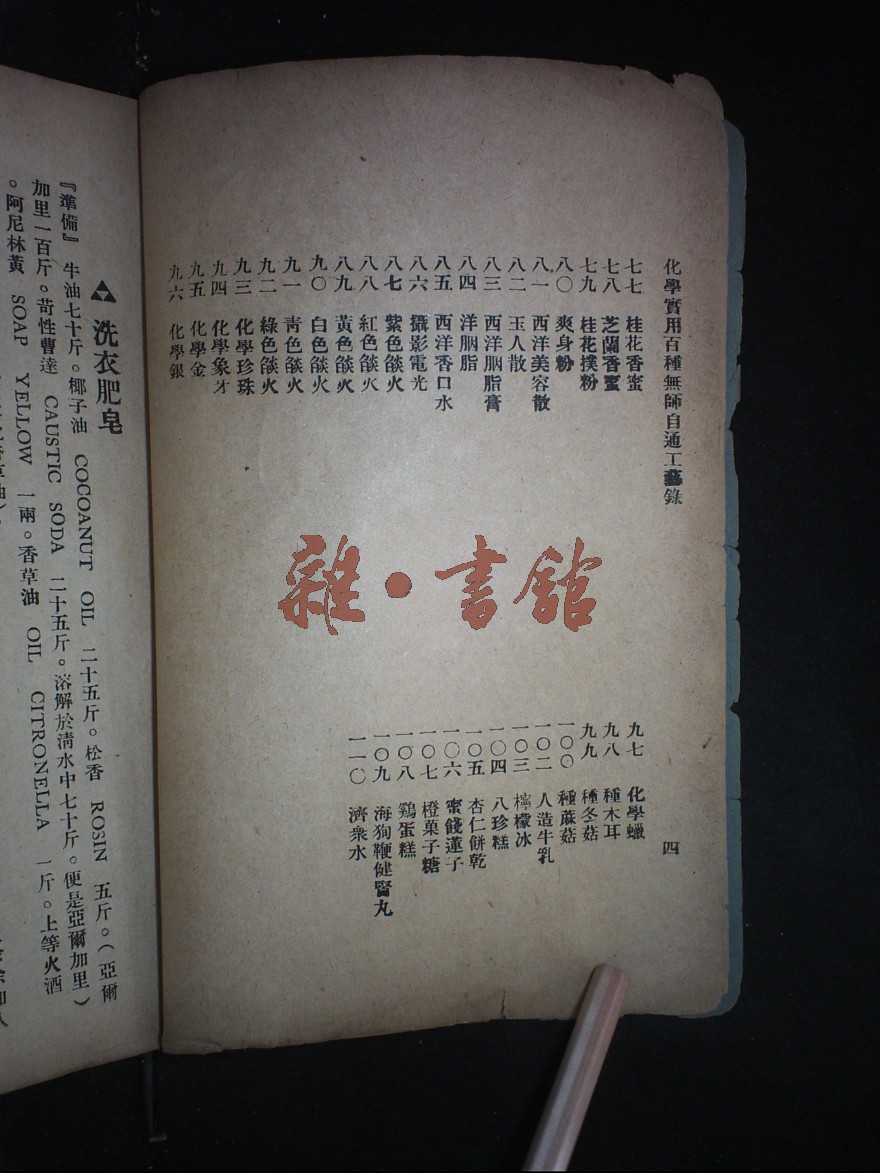 化學實用百種無師自通工藝錄
四
七七 桂花香蜜
七八 芝蘭香蜜
七九 桂花撲粉
八〇 爽身粉
八一 西洋美容散
八二 玉人散
八三 西洋胭脂膏
八四 洋胭脂
八五 西洋香口水
八六 攝影電光
八七 紫色燄火
八八 紅色燄火
八九 黃色燄火
九〇 白色燄火
九一 青色燄火
九二 綠色燄火
九三 化學珍珠
九四 化學象牙
九五 化學金
九六 化學銀
九七 化學蠟
九八 種木耳
九九 種冬菇
一〇〇 種蔴菇
一〇二 人造牛乳
一〇三 檸檬冰
一〇四 八珍糕
一〇五 杏仁餅乾
一〇六 蜜餞蓮子
一〇七 橙菓子糖
一〇八 鷄蛋糕
一〇九 海狗鞭健腎丸
一一〇 濟衆水
雜·書館
洗衣肥皂
『準備』 牛油七十斤。椰子油 COCOANUT OIL 二十五斤。松香 ROSIN 五斤。（亞爾
加里一百斤。苛性曹達 CAUSTIC SODA 二十五斤。溶解於清水中七十斤。便是亞爾加里）
。阿尼林黃 SOAP YELLOW 一兩。香草油 OIL CITRONELLA 一斤。上等火酒